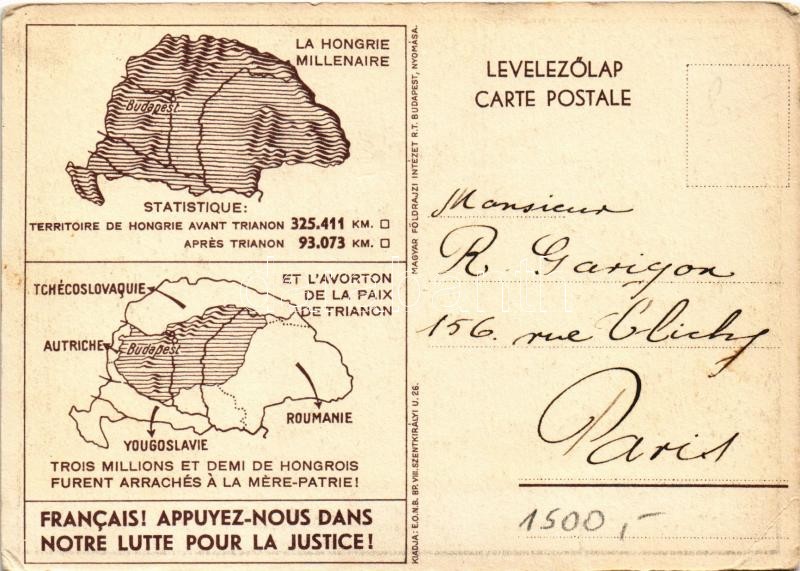 LA HONGRIE
MILLENAIRE
Budapest
STATISTIQUE:
TERRITOIRE DE HONGRIE AVANT TRIANON 325.411 KM. □
APRÈS TRIANON 93.073 KM. □
ET L'AVORTON
DE LA PAIX
DE TRIANON
TCHÉCOSLOVAQUIE
AUTRICHE
Budapest
ROUMANIE
YOUGOSLAVIE
TROIS MILLIONS ET DEMI DE HONGROIS
FURENT ARRACHÉS À LA MÈRE-PATRIE!
FRANÇAIS! APPUYEZ-NOUS DANS
NOTRE LUTTE POUR LA JUSTICE!
MAGYAR FÖLDRAJZI INTÉZET R.T. BUDAPEST, NYOMÁSA.
KIADJA: E.O.N.B. BP. VIII. SZENTKIRÁLYI U. 26.
LEVELEZŐLAP
CARTE POSTALE
Monsieur
R. Garigon
156. rue Clichy
Paris
1500,-